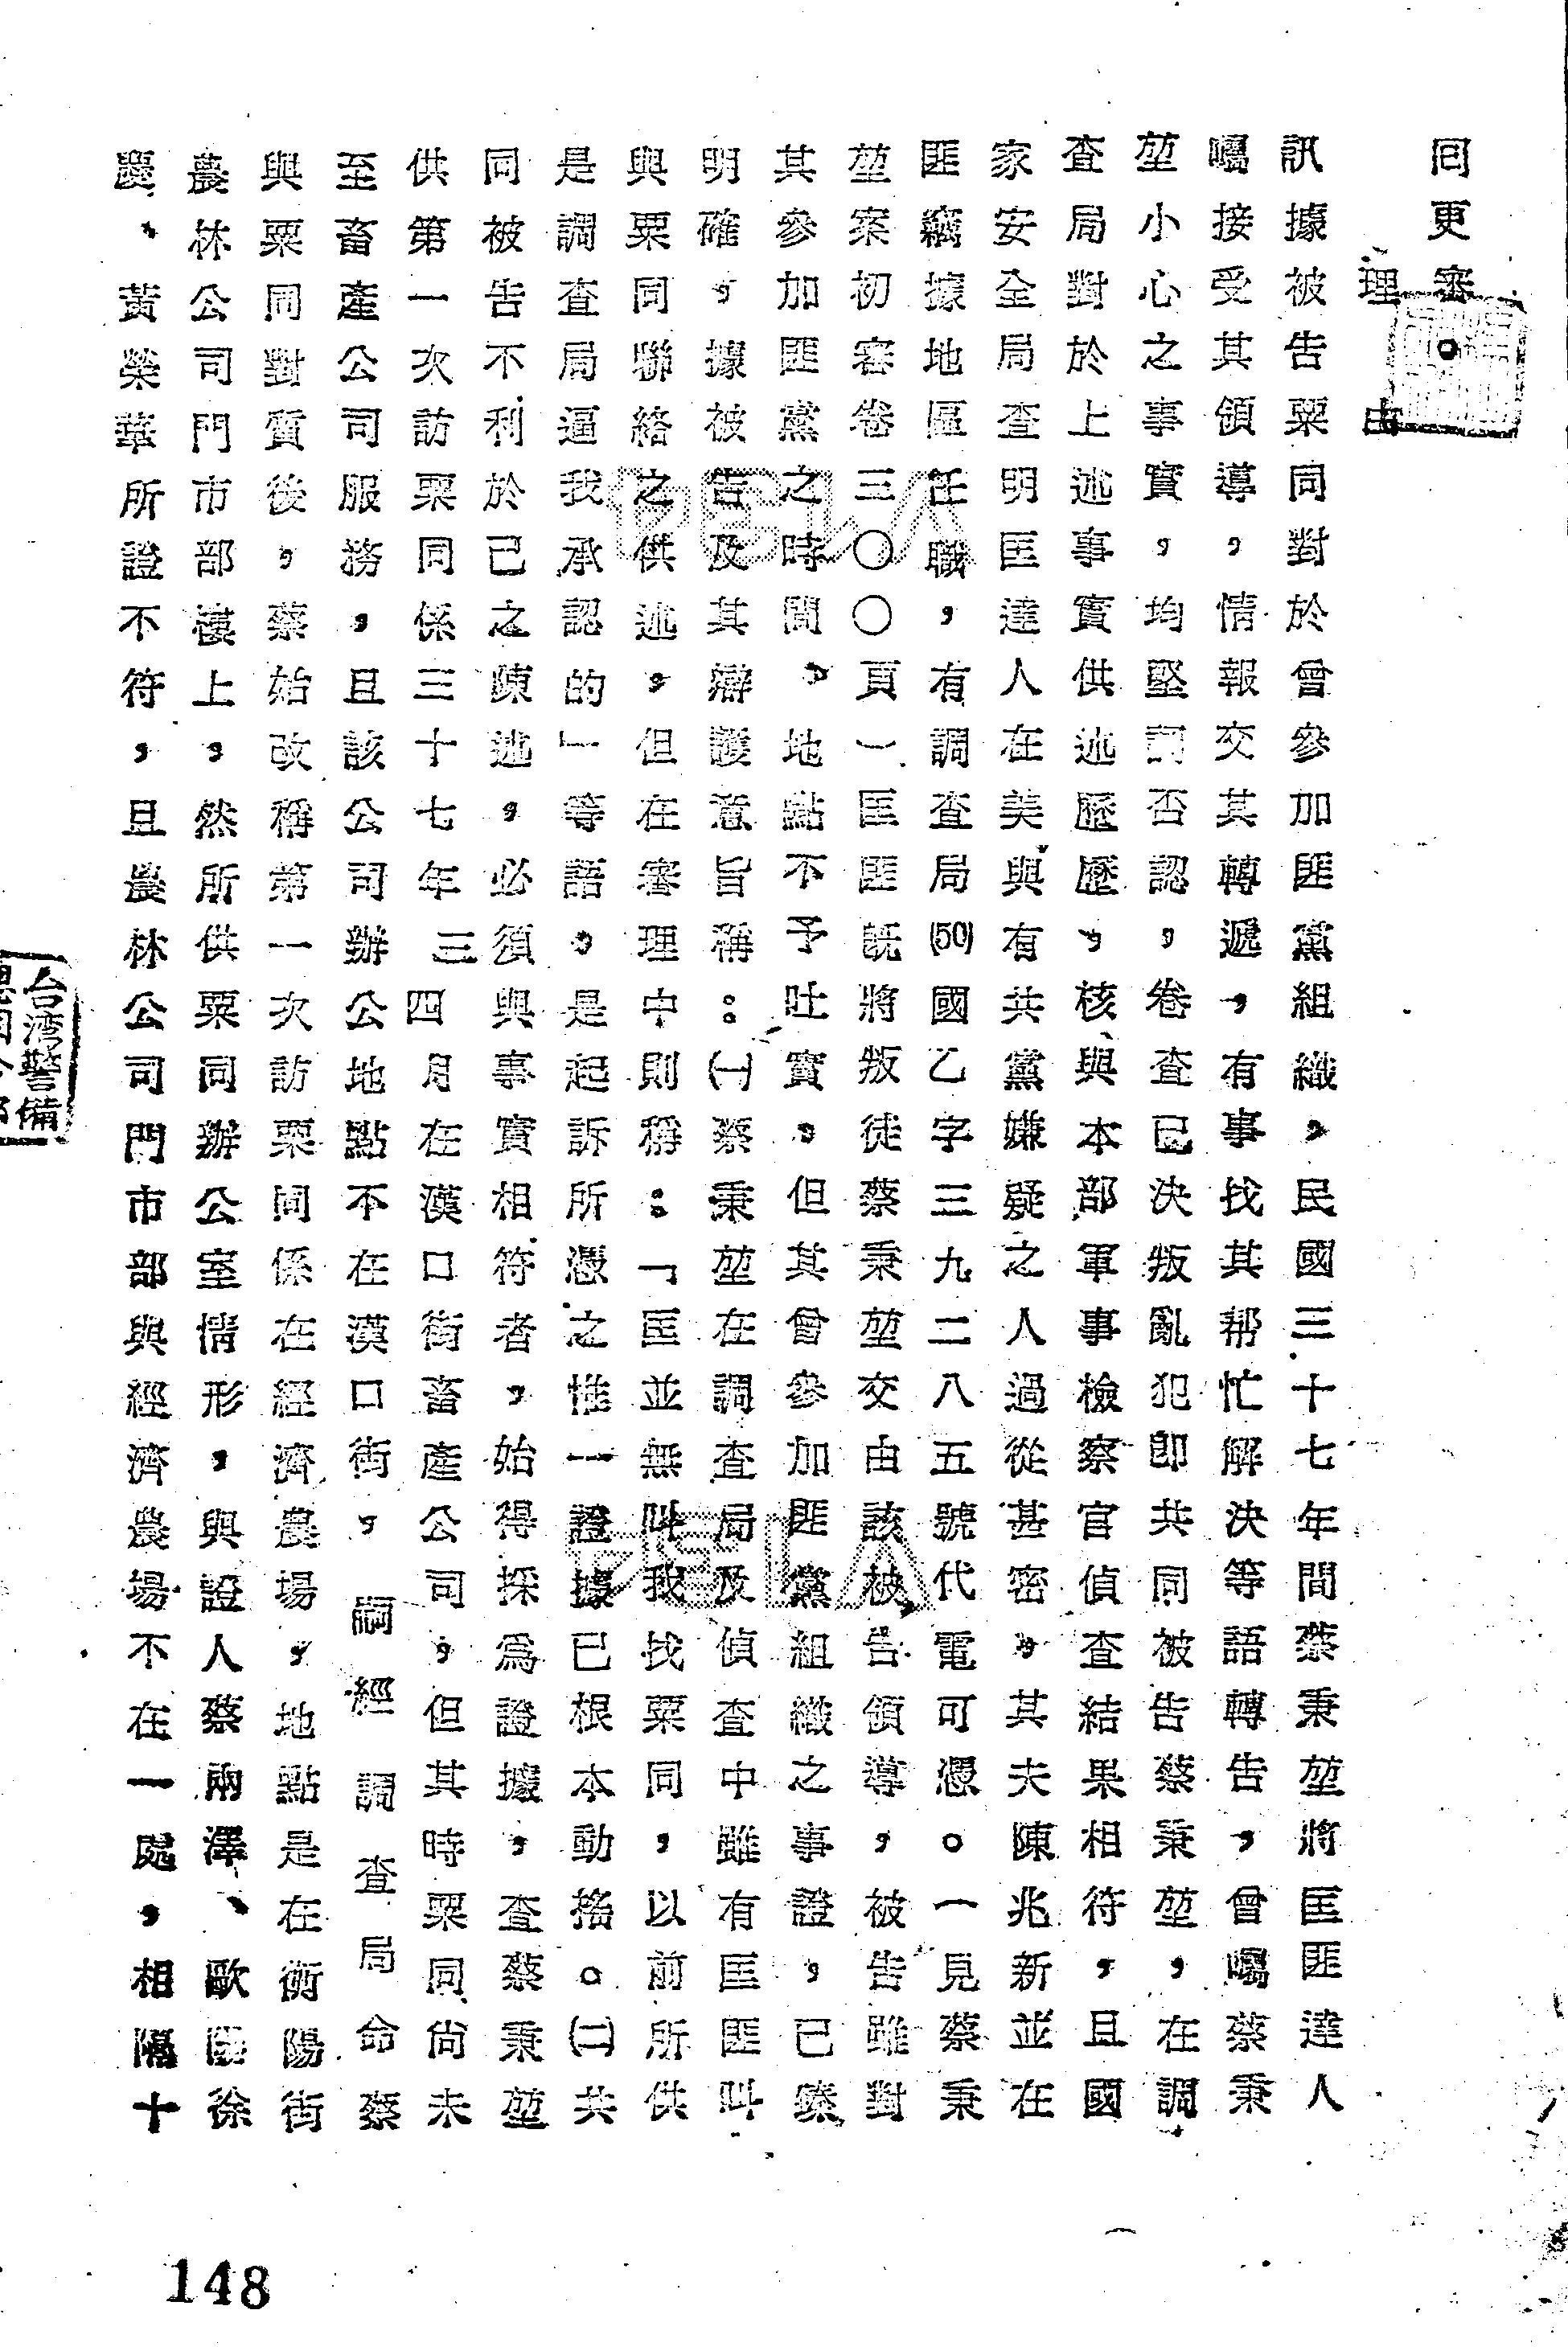 回更審。
理由
訊據被告粟同對於曾參加匪黨組織，民國三十七年間蔡秉堃將匡匪達人
囑接受其領導，情報交其轉遞，有事找其帮忙解決等語轉告，曾囑蔡秉
堃小心之事實，均堅詞否認，卷查已決叛亂犯即共同被告蔡秉堃，在調
查局對於上述事實供述歷歷，核與本部軍事檢察官偵查結果相符，且國
家安全局查明匡達人在美與有共黨嫌疑之人過從甚密，其夫陳兆新並在
匪竊據地區任職，有調查局(50)國乙字三九二八五號代電可憑。一見蔡秉
堃案初審卷三〇〇頁一匡匪既將叛徒蔡秉堃交由該被告領導，被告雖對
其參加匪黨之時間、地點不予吐實。但其曾參加匪黨組織之事證，已臻
明確，據被告及其辯護意旨稱：㈠蔡秉堃在調查局及偵查中雖有匡匪叫
與粟同聯絡之供述，但在審理中則稱：「匡並無叫我找粟同，以前所供
是調查局逼我承認的」等語。是起訴所憑之惟一證據已根本動搖。㈡共
同被告不利於己之陳述，必須與事實相符者，始得採為證據，查蔡秉堃
供第一次訪粟同係三十七年三四月在漢口街畜產公司，但其時粟同尚未
至畜產公司服務，且該公司辦公地點不在漢口街，嗣經調查局命蔡
與粟同對質後，蔡始改稱第一次訪粟同係在經濟農場，地點是在衡陽街
農林公司門市部樓上，然所供粟同辦公室情形，與證人蔡兩澤、歐陽徐
慶、黃榮華所證不符，且農林公司門市部與經濟農場不在一處，相隔十
台灣警備
148